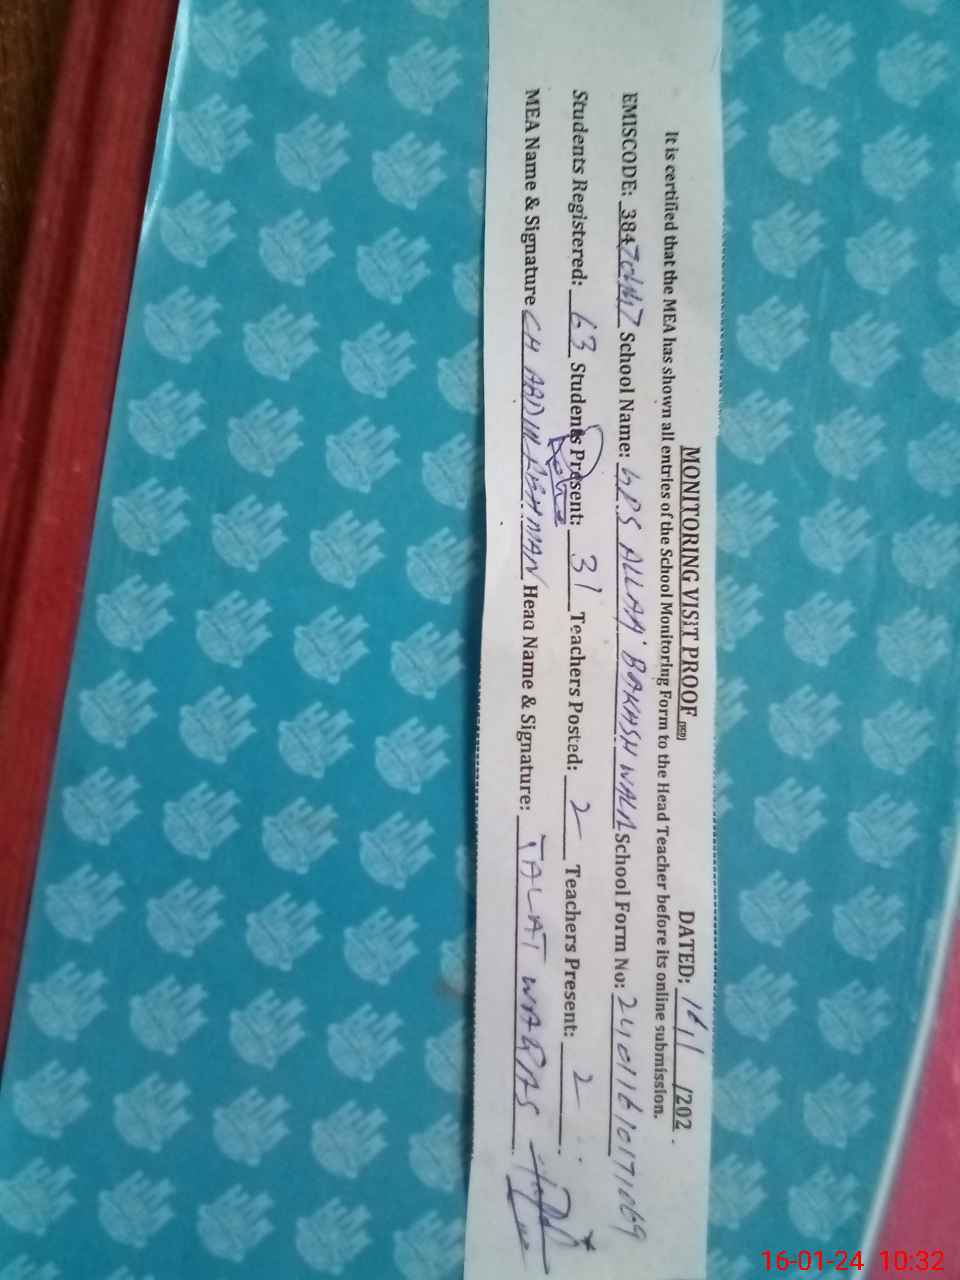 MONITORING VISIT PROOF DATED: 16/1/202
It is certified that the MEA has shown all entries of the School Monitoring Form to the Head Teacher before its online submission.
EMISCODE: School Name: GPS ALLAH BAKHSH WALA School Form No: 24011610171069
Students Registered: 63 Students Present: 31 Teachers Posted: 2 Teachers Present: 2
MEA Name & Signature CH ABDUR REHMAN Head Name & Signature: TALAT WAQAS
16-01-24 10:32